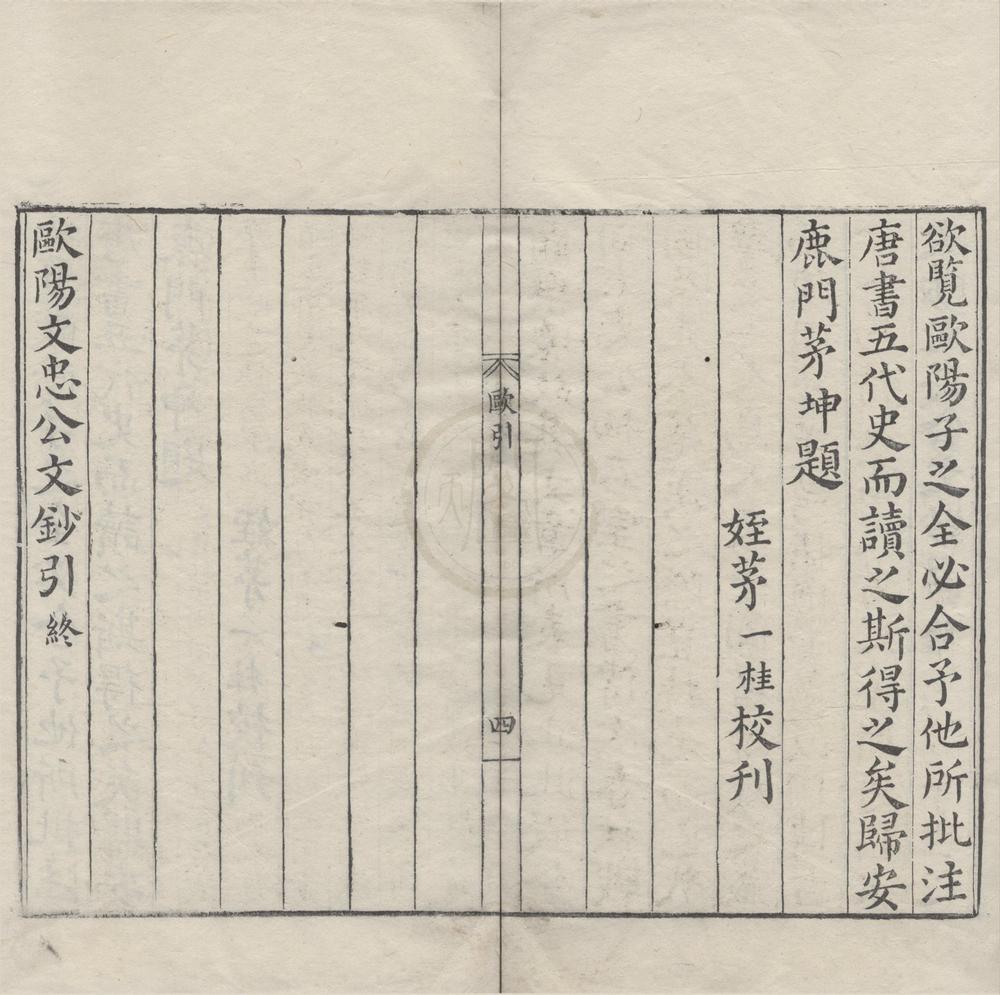 欲覽歐陽子之全必合予他所批注
唐書五代史而讀之斯得之矣歸安
鹿門茅坤題
姪茅一桂校刊
歐引
四
歐陽文忠公文鈔引終